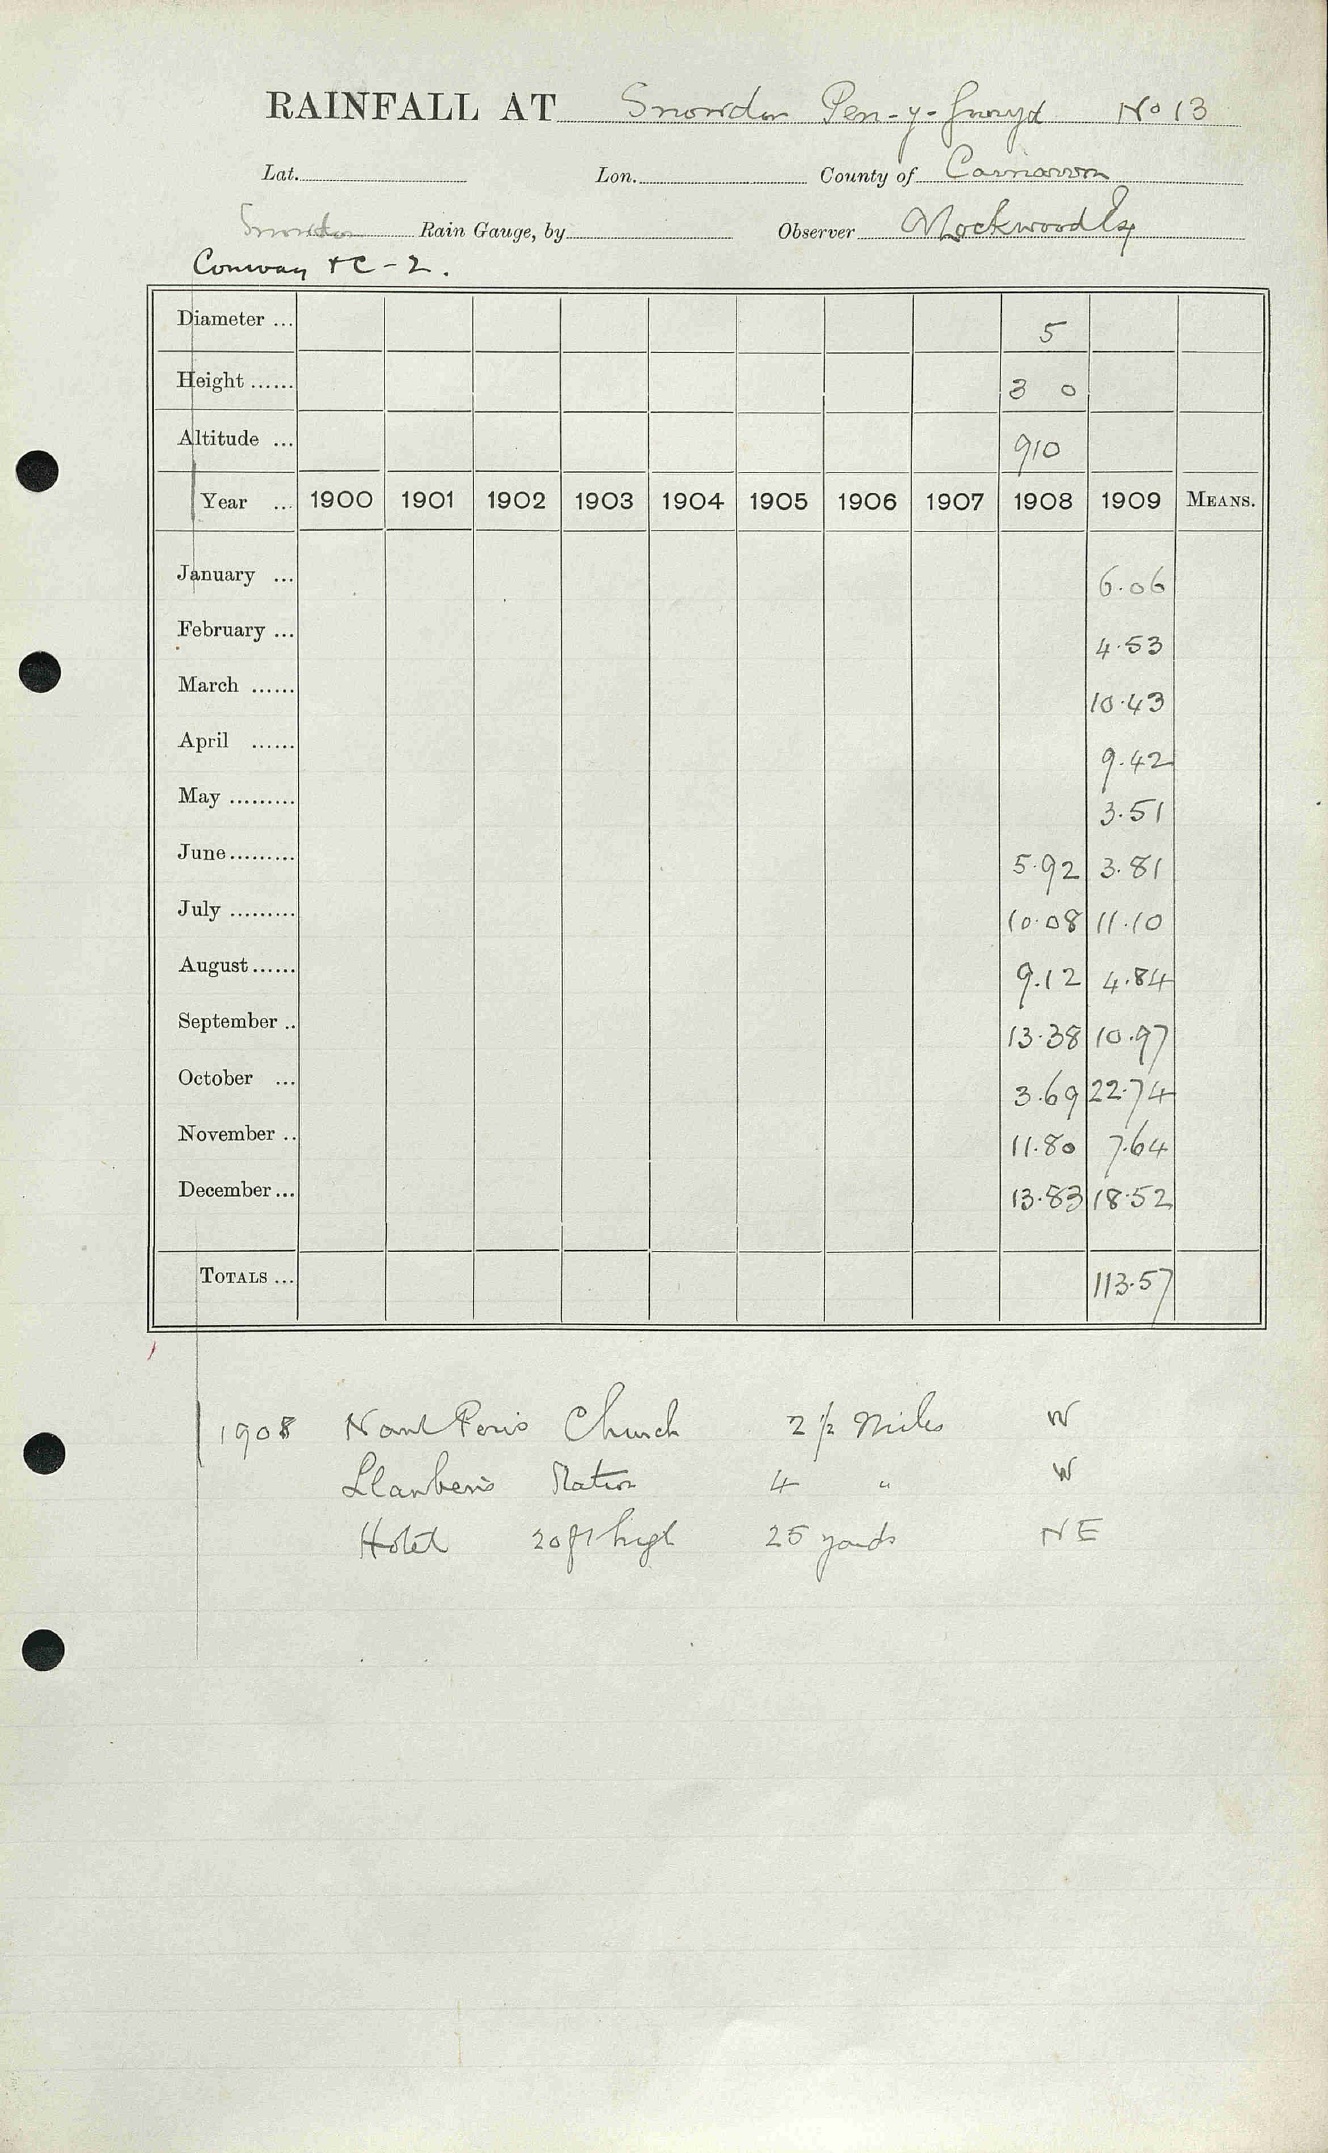 RAINFALL AT Snowdon Pen-y-gwryd No 13
Lat. Lon. County of Carnarvon
Snowdon Rain Gauge, by Observer Lockwood Esq
Conway + C - 2.
Diameter ... 5
Height ...... 3 0
Altitude ... 910
Year ... 1900 1901 1902 1903 1904 1905 1906 1907 1908 1909 MEANS.
January ... 6.06
February ... 4.53
March ...... 10.43
April ...... 9.42
May ......... 3.51
June ......... 5.92 3.81
July ......... 10.08 11.10
August ...... 9.12 4.84
September .. 13.38 10.97
October ... 3.69 22.74
November .. 11.80 7.64
December ... 13.83 18.52
TOTALS ... 113.57
1908 Nant Peris Church 2 1/2 Miles W
Llanberis Station 4 " W
Hotel 20 ft high 25 yards NE